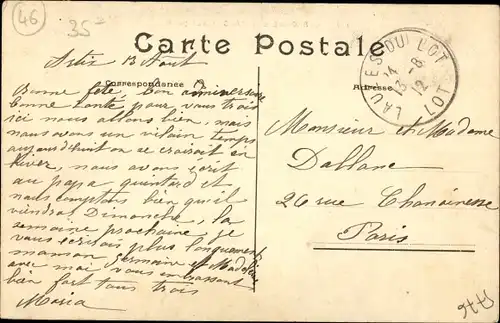 46
35²
Carte Postale
13 Aout
Correspondance
Adresse
LOT
14
13-8
12
LOT
Bonne fête, bon anniversaire
bonne santé pour vous trois
ici nous allons bien, mais
nous avons un vilain temps
aujourd'huit on se croirait en
hiver, nous avons écrit
au papa et
nous comptons bien qu'il
viendra Dimanche, la
semaine prochaine je
vous écrirais plus longuement
maman Germaine et
avec moi vous embrassent
bien fort tous trois
Maria
Monsieur et Madame
Dallane
26 rue Chanoinesse
Paris